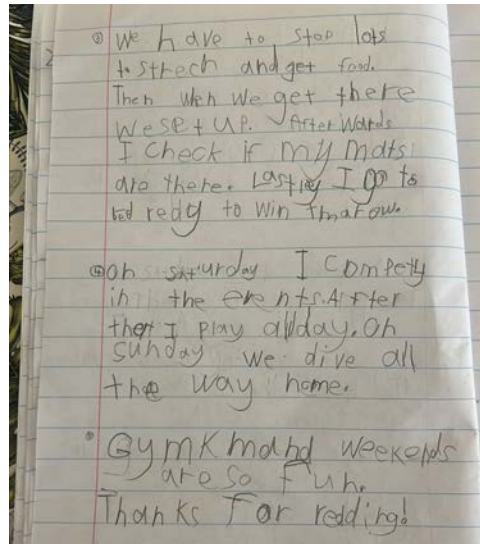 ③ We have to stop lots
to strech and get food.
Then wen we get there
we set up. After wards
I check if my mats
are there. Lastley I go to
bed redy to win tmarow.
④ On saturday I compety
in the events. After
that I play all day. On
sunday we dive all
the way home.
Gymkhana weekends
are so fun.
Thanks for redding!